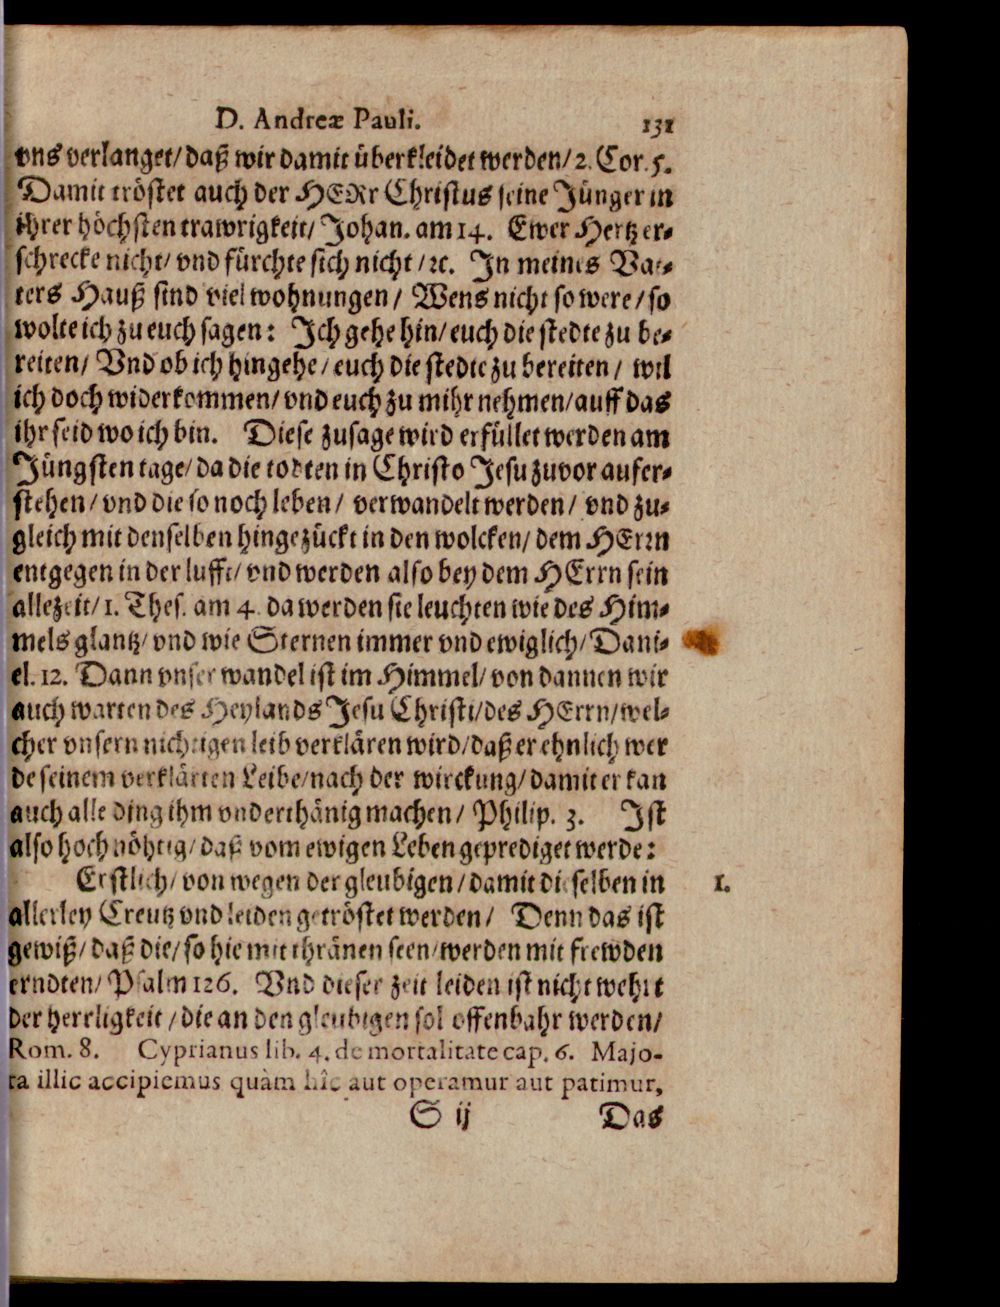 D. Andreæ Pauli. 131
vns verlanget/ daß wir damit überkleidet werden/ 2. Cor. 5.
Damit tröstet auch der HERr Christus seine Jünger in
ihrer höchsten trawrigkeit/ Johan. am 14. Ewer Hertz er-
schrecke nicht/ vnd fürchte sich nicht/ ꝛc. In meines Va-
ters Hauß sind viel wohnungen/ Wens nicht so were/ so
wolte ich zu euch sagen: Ich gehe hin/ euch die stedte zu be-
reiten/ Vnd ob ich hingehe/ euch die stedte zu bereiten/ wil
ich doch widerkommen/ vnd euch zu mihr nehmen/ auff das
ihr seid wo ich bin. Diese zusage wird erfüllet werden am
Jüngsten tage/ da die todten in Christo Jesu zuvor aufer-
stehen/ vnd die so noch leben/ verwandelt werden/ vnd zu-
gleich mit denselben hingezückt in den wolcken/ dem HErrn
entgegen in der lufft/ vnd werden also bey dem HErrn sein
allezeit/ 1. Thes. am 4. da werden sie leuchten wie des Him-
mels glantz/ vnd wie Sternen immer vnd ewiglich/ Dani-
el. 12. Dann vnser wandel ist im Himmel/ von dannen wir
auch warten des Heylands Jesu Christi/ des HErrn/ wel-
cher vnsern nichtigen leib verklären wird/ daß er ehnlich wer
de seinem verklärten Leibe/ nach der wirckung/ damit er kan
auch alle ding ihm vnderthänig machen/ Philip. 3. Ist
also hoch nöhtig/ daß vom ewigen Leben geprediget werde:
Erstlich/ von wegen der gleubigen/ damit dieselben in 1.
allerley Creutz vnd leiden getröstet werden/ Denn das ist
gewiß/ daß die/ so hie mit thränen seen/ werden mit frewden
erndten/ Psalm 126. Vnd dieser zeit leiden ist nicht wehrt
der herrligkeit/ die an den gleubigen sol offenbahr werden/
Rom. 8. Cyprianus lib. 4. de mortalitate cap. 6. Majo-
ra illic accipiemus quàm hîc aut operamur aut patimur,
S ij Das